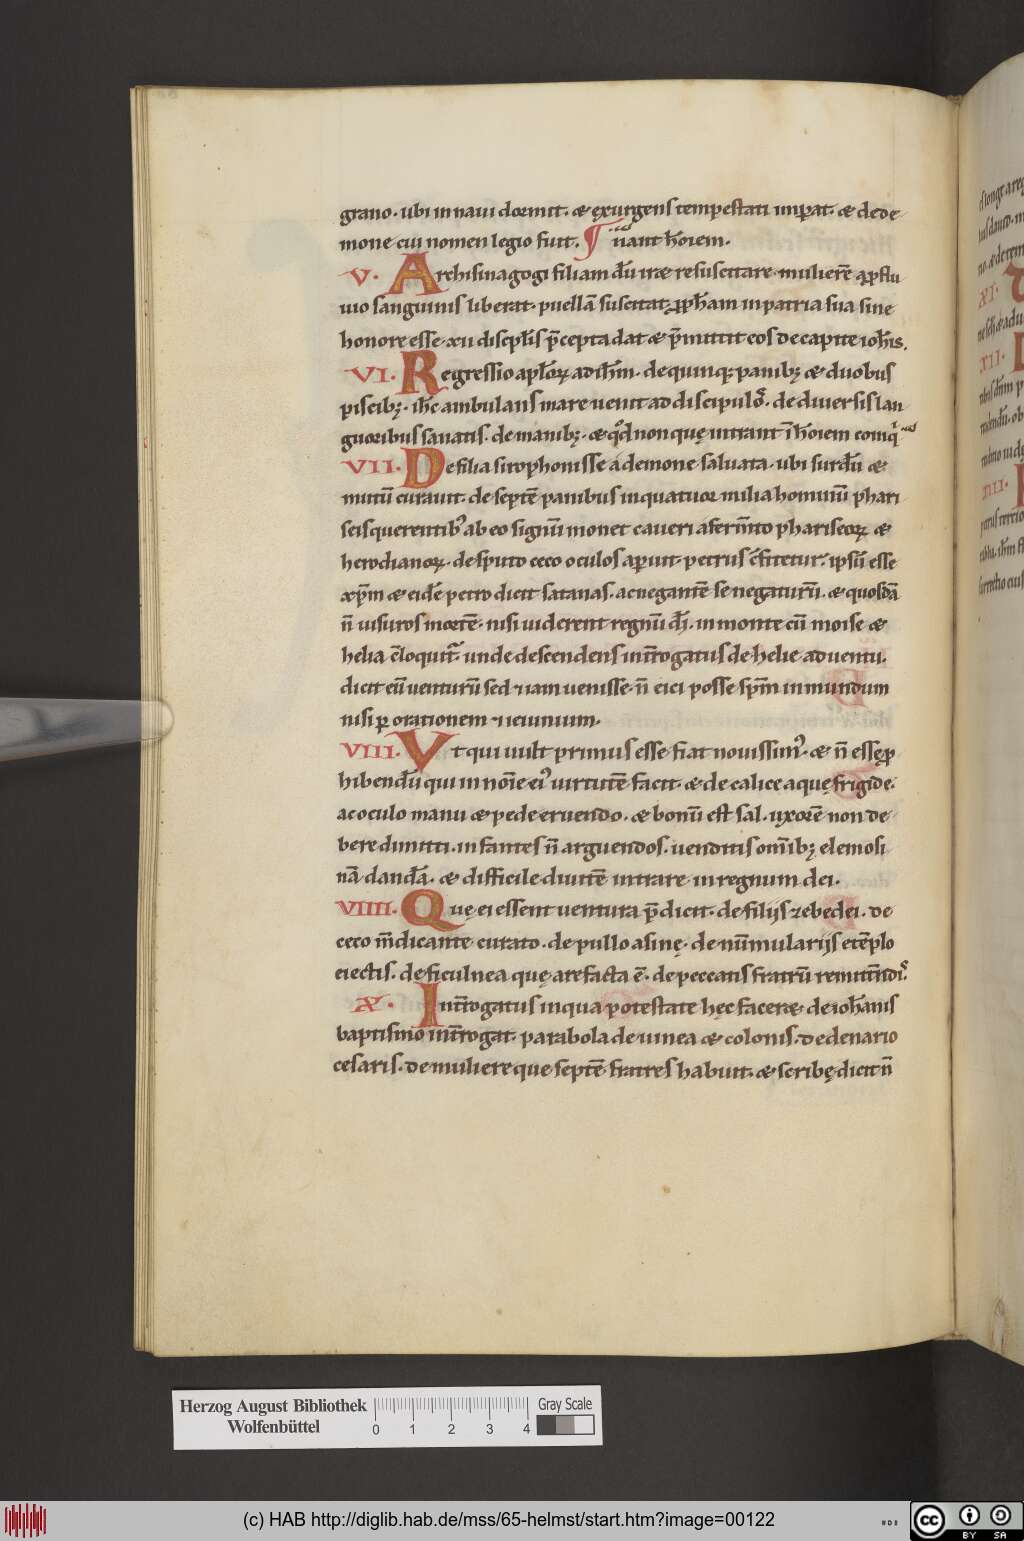 grano. ubi in naui dormit. & exurgens tempestati imp̄at. & de de
mone cui nomen legio fuit.
¶ nant ho͞iem.
V. Archisinagogi filiam dū iræ resuscitare mulierē a ꝓflu
uio sanguinis liberat. puellā suscitat. ꝓph̄am in patria sua sine
honore esse. xii discipl̄is p̄cepta dat & p̄mittit eos de capite ioh̄is.
VI. Regressio apl̄oꝝ ad ih̄m. de quinq; panibꝫ & duobus
piscibꝫ. ih̄c ambulans mare uenit ad discipulos. de diuersis lan
guoribus sanatis. de manibꝫ. & qd̄ non quę intrant ī ho͞iem
VII. De filia sirophonisse a demone saluata. ubi surdū &
mutū curauit. de septē panibus in quatuor milia hominū phari
seis querentibꝰ ab eo signū monet caueri a ferm̄to phariseoꝝ &
herodianoꝝ. de sputo ceco oculos aꝑuit. petrus c̄fitetur. ipsū esse
xp̄m & eidē petro dicit satanas. ac negantē se negaturū. & quosdā
n̄ uisuros mortē. nisi uiderent regnū dī. in monte cū moise &
helia c̄loquit͛. unde descendens int̄rogatus de helie aduentu.
dicit eū uenturū sed iam uenisse. n̄ eici posse sp̄m inmundum
nisi ꝑ orationem & ieiunium.
VIII. Vt qui uult primus esse fiat nouissimꝰ. & n̄ esse ꝓ
hibendū qui in no͞ie eiꝰ uirtutē facit. & de calice aquę frigide.
ac oculo manu & pede eruendo. & bonū est sal. uxorē non de
bere dimitti. infantes n̄ arguendos. uenditis om̄ibꝫ elemosi
nā dandā. & difficile diuitē intrare in regnum dei.
VIIII. Quę ei essent uentura p̄dicit. de filijs zebedei. de
ceco m̄dicante curato. de pullo asinę. de nūmularijs e tēplo
eiectis. de ficulnea quę arefacta ē. de peccatis fratrū remitt̄ndis.
X. Int̄rogatus in qua potestate hęc faceret. de ioh̄anis
baptismo int̄rogat. parabola de uinea & colonis. de denario
cesaris. de muliere que septē fratres habuit. & scribę dicit n̄
XI.
XII.
Herzog August Bibliothek
Wolfenbüttel
0 1 2 3 4
Gray Scale
(c) HAB http://diglib.hab.de/mss/65-helmst/start.htm?image=00122
cc BY SA